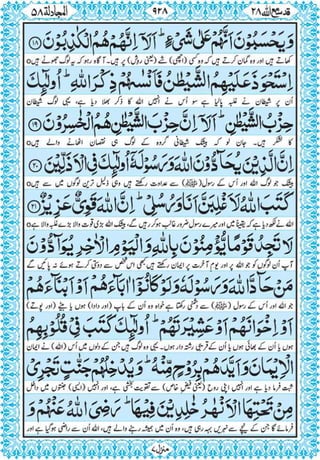 قد سمع الله ٢٨ ٩٢٨ المجادلة ٥٨
وَيَحْسَبُوْنَ اَنَّهُمْ عَلٰى شَیْءٍ ؕ اَلَاۤ اِنَّهُمْ هُمُ الْكٰذِبُوْنَ ﴿۱۸﴾
اور گمان کریں گے کہ وہ کسی (اچھی) شے (یعنی روش) پر ہیں۔ آگاہ رہو کہ یہ لوگ جھوٹے ہیں
اِسْتَحْوَذَ عَلَیْهِمُ الشَّیْطٰنُ فَاَنْسٰىهُمْ ذِكْرَ اللّٰهِ ؕ اُولٰٓىِٕكَ
اُن پر شیطان نے غلبہ پا لیا ہے سو اُس نے انہیں اللہ کا ذکر بھلا دیا ہے، یہی لوگ شیطان
حِزْبُ الشَّیْطٰنِ ؕ اَلَاۤ اِنَّ حِزْبَ الشَّیْطٰنِ هُمُ الْخٰسِرُوْنَ ﴿۱۹﴾
کا لشکر ہیں۔ جان لو کہ بیشک شیطانی گروہ کے لوگ ہی نقصان اٹھانے والے ہیں
اِنَّ الَّذِیْنَ یُحَآدُّوْنَ اللّٰهَ وَرَسُوْلَهٗۤ اُولٰٓىِٕكَ فِی الْاَذَلِّیْنَ ﴿۲۰﴾
بیشک جو لوگ اللہ اور اُس کے رسول (ﷺ) سے عداوت رکھتے ہیں وہی ذلیل ترین لوگوں میں سے ہیں
كَتَبَ اللّٰهُ لَاَغْلِبَنَّ اَنَا وَرُسُلِیْ ؕ اِنَّ اللّٰهَ قَوِیٌّ عَزِیْزٌ ﴿۲۱﴾
اللہ نے لکھ دیا ہے کہ یقیناً میں اور میرے رسول ضرور غالب ہو کر رہیں گے، بیشک اللہ بڑی قوت والا بڑے غلبہ والا ہے
لَا تَجِدُ قَوْمًا یُّؤْمِنُوْنَ بِاللّٰهِ وَالْیَوْمِ الْاٰخِرِ یُوَآدُّوْنَ
آپ اُن لوگوں کو جو اللہ پر اور یومِ آخرت پر ایمان رکھتے ہیں کبھی اس شخص سے دوستی کرتے ہوئے نہ پائیں گے
مَنْ حَآدَّ اللّٰهَ وَرَسُوْلَهٗ وَلَوْ كَانُوْۤا اٰبَآءَهُمْ اَوْ اَبْنَآءَهُمْ
جو اللہ اور اُس کے رسول (ﷺ) سے دشمنی رکھتا ہے خواہ وہ اُن کے باپ (اور دادا) ہوں یا بیٹے (اور پوتے)
اَوْ اِخْوَانَهُمْ اَوْ عَشِیْرَتَهُمْ ؕ اُولٰٓىِٕكَ كَتَبَ فِیْ قُلُوْبِهِمُ
ہوں یا اُن کے بھائی ہوں یا اُن کے قریبی رشتہ دار ہوں۔ یہی وہ لوگ ہیں جن کے دلوں میں اُس (اللہ) نے ایمان
الْاِیْمَانَ وَاَیَّدَهُمْ بِرُوْحٍ مِّنْهُ ؕ وَیُدْخِلُهُمْ جَنّٰتٍ تَجْرِیْ
ثبت فرما دیا ہے اور انہیں اپنی روح (یعنی فیضِ خاص) سے تقویت بخشی ہے، اور انہیں (ایسی) جنتوں میں داخل
مِنْ تَحْتِهَا الْاَنْهٰرُ خٰلِدِیْنَ فِیْهَا ؕ رَضِیَ اللّٰهُ عَنْهُمْ وَ
فرمائے گا جن کے نیچے سے نہریں بہہ رہی ہیں، وہ اُن میں ہمیشہ رہنے والے ہیں، اللہ اُن سے راضی ہو گیا ہے اور
منزل ۷